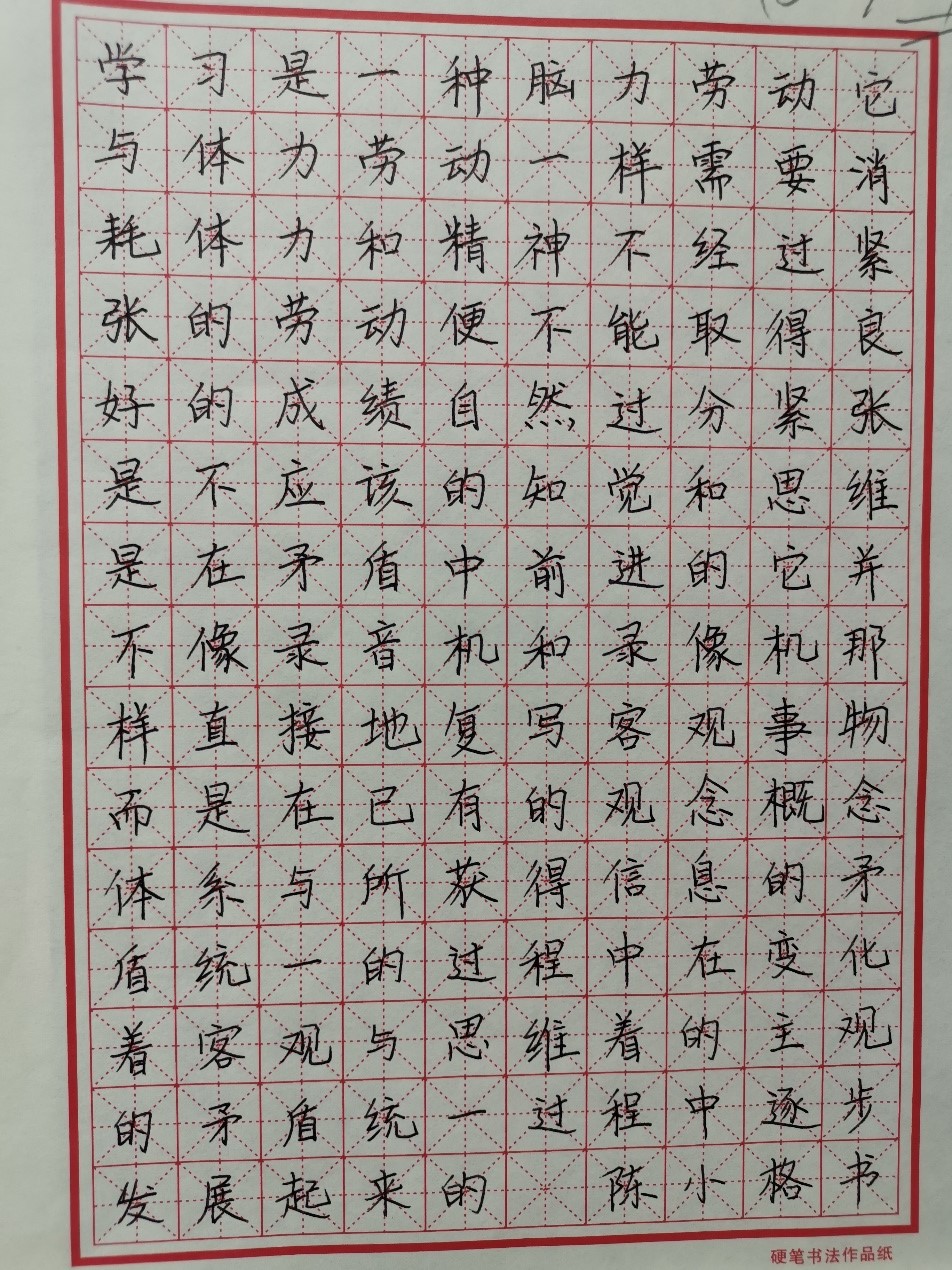 学习是一种脑力劳动它
与体力劳动一样需要消
耗体力和精神不经过紧
张的劳动便不能取得良
好的成绩自然过分紧张
是不应该的知觉和思维
是在矛盾中前进的它并
不像录音机和录像机那
样直接地复写客观事物
而是在已有的观念概念
体系与所获得信息的矛
盾统一的过程中在变化
着客观与思维着的主观
的矛盾统一过程中逐步
发展起来的 陈小格书
硬笔书法作品纸